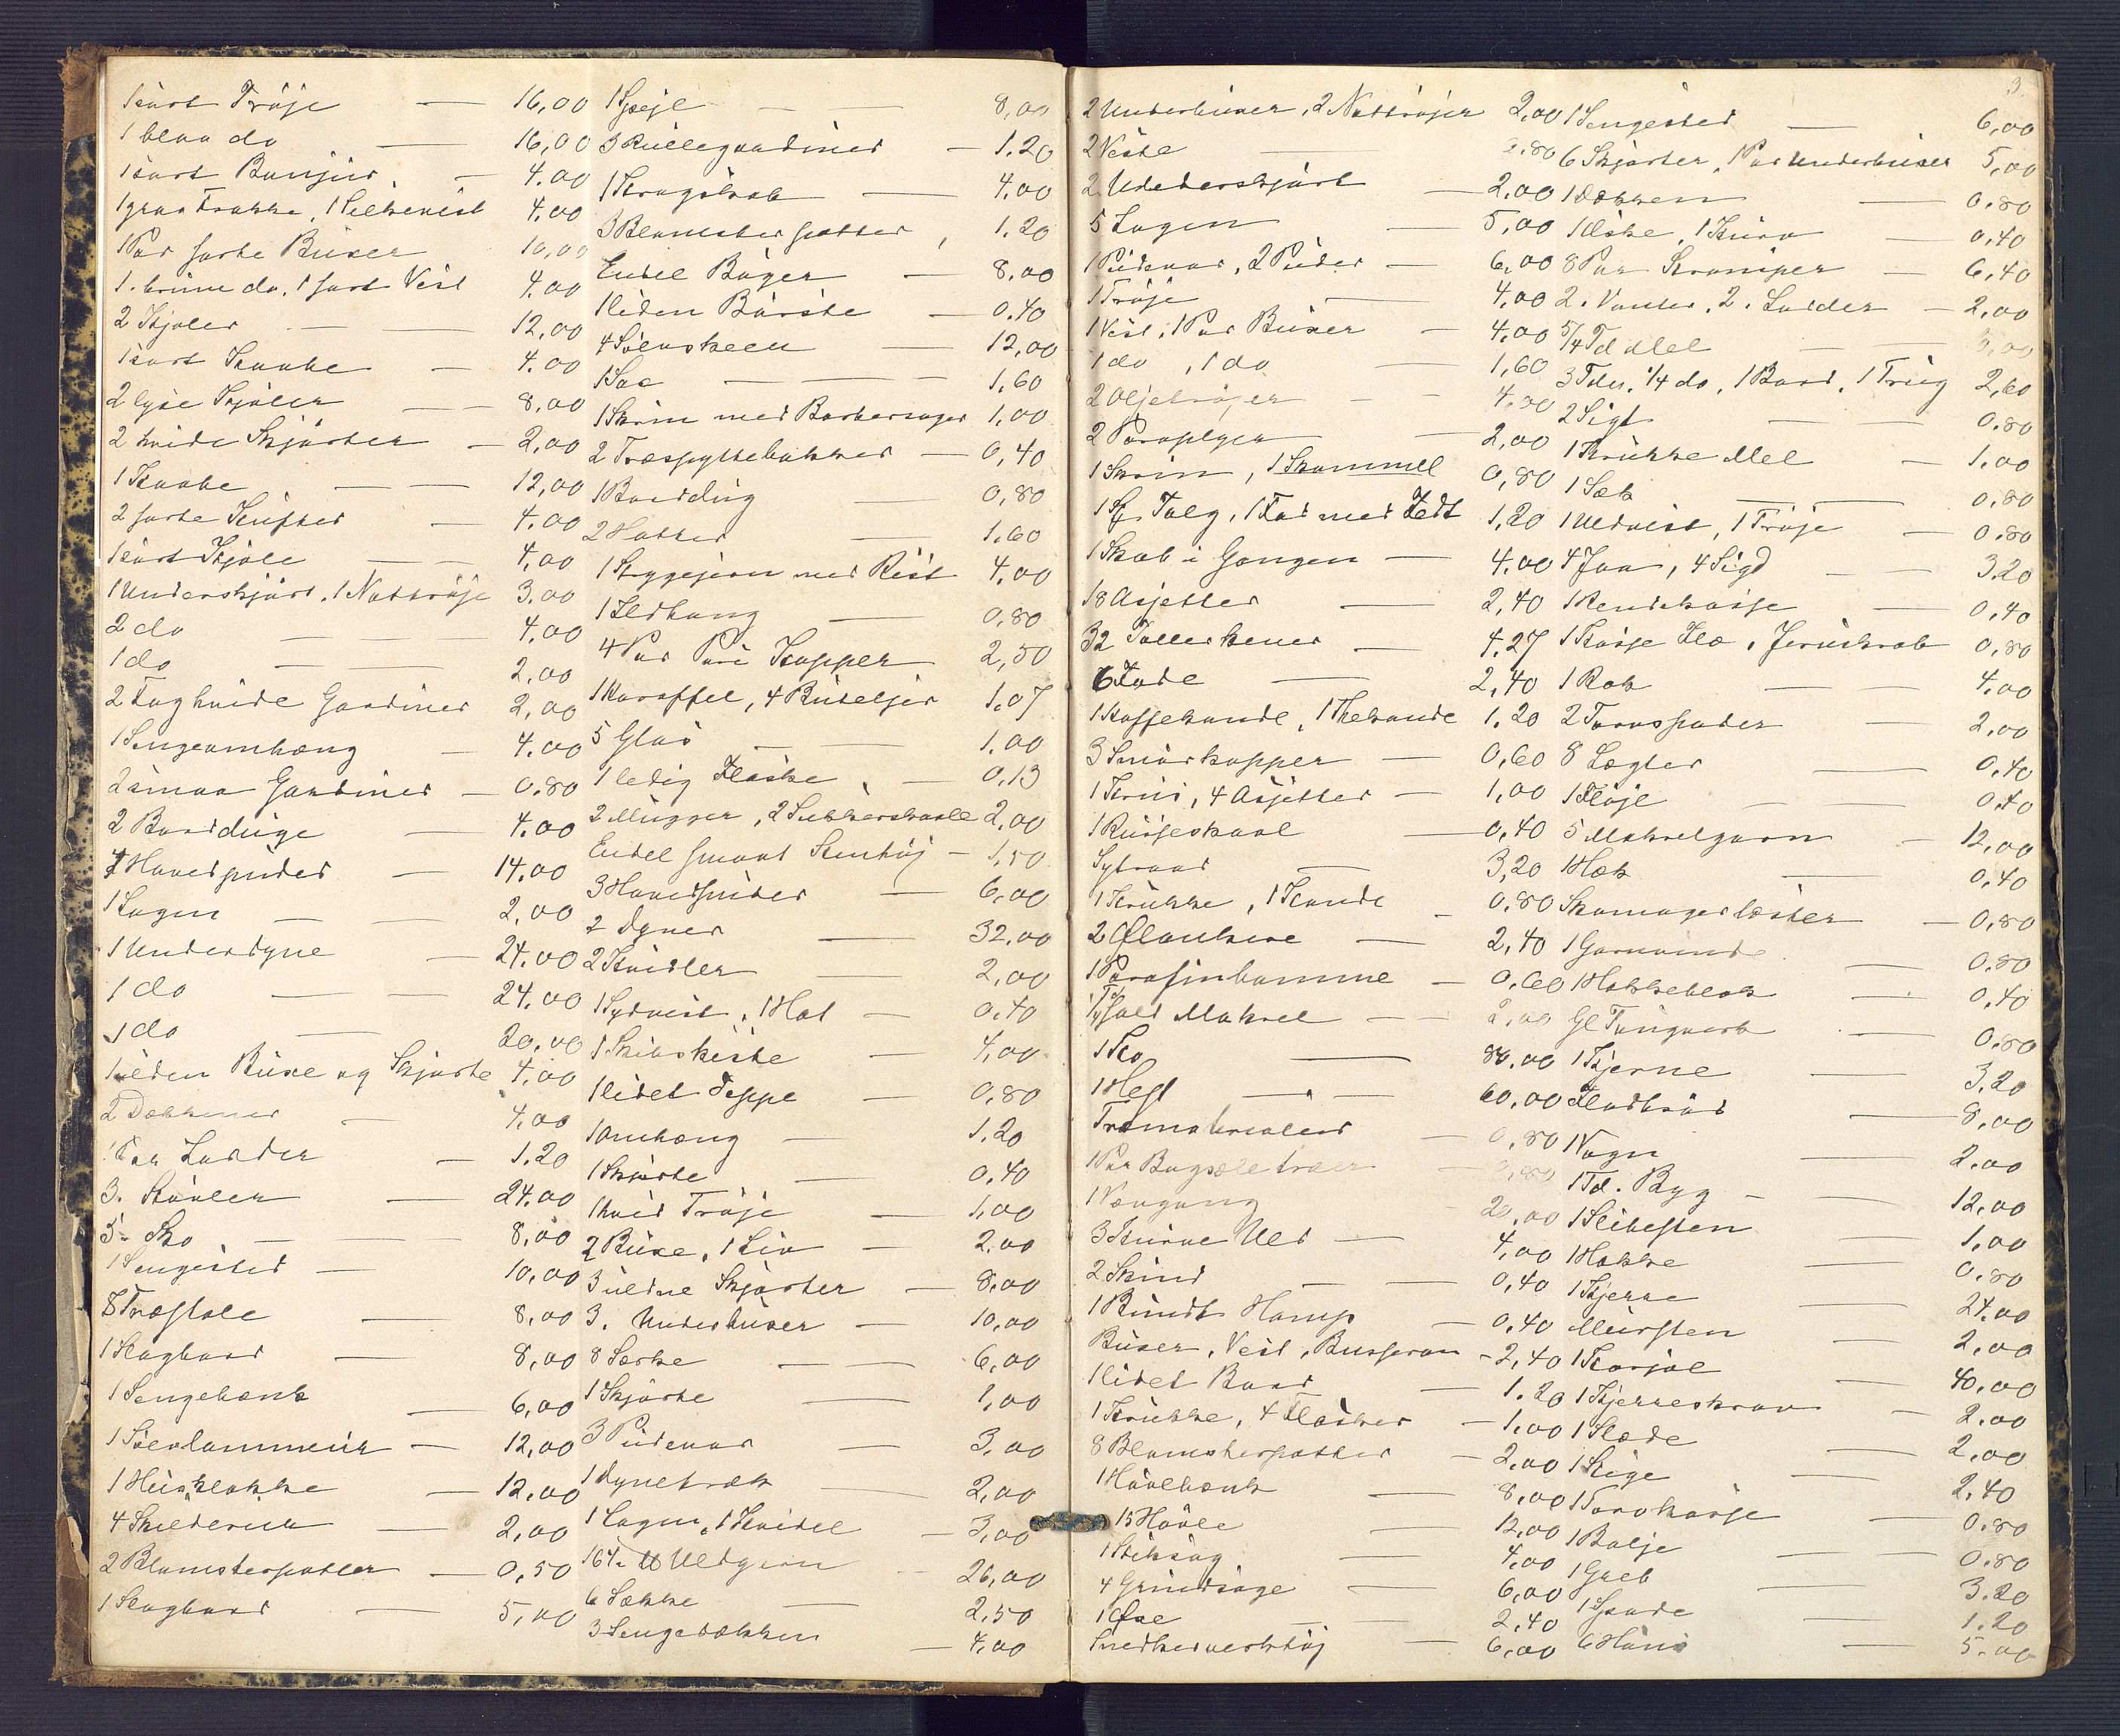 1 sort Trøje — 16,00
1 blaa do — 16,00
1 sort Bonjur — 4.00
1 graa Frakke, 1 Silkevest 4,00
1 Par sorte Buxer 10,00
1. brune do, 1 sort Vest 4,00
2 Kjoler — 12,00
1 sort Kaabe — 4.00
2 lyse Kjoler — 8,00
2 hvide Skjørter — 2,00
1 Kaabe — 12,00
2 sorte Skifter — 4,00
1 sort Kjole — 4,00
1 Underskjørt, 1 Nattrøje 3.00
2 do — 4,00
1 do — 2,00
2 Fag hvide Gardiner 2,00
1 Sengeomhæng — 4.00
2 smaa Gardiner — 0.80
2 Bordduge — 4.00
7 Hovedpuder — 14.00
1 Lagen — 2,00
1 Underdyne — 24.00
1 do — 24.00
1 do — 20,00
1 ulden Buxe og Skjorte 4,00
2 Dækkener — 4,00
1 Par Lodder — 1.20
3. Støvler — 24.00
5- Sko — 8,00
1 Sengested — 10,00
8 Træstole 8,00
1 Slagbord — 8,00
1 Sengebænk — 6,00
1 Sovekammeur — 12,00
1 Husklokke — 12,00
4 Skilderier — 2,00
2 Blomsterpotter — 0,50
1 Slagbord — 5,00
1 Spejl — 8,00
3 Rullegardiner — 1.20
1 Kragskab — 4,00
3 Blomsterpotter, 1,20
Endel Bøger — 8,00
1 liden Børste — 0.40
4 Sølvskeer — 12,00
1 Sax — 1,60
1 Skrin med Barbersager 1,00
2 Træspyttebakker — 0,40
1 Borddug — 0,80
2 Hatter — 1.60
1 Strygejern med Rist 4,00
1 Ildtang — 0,80
4 Par Par Kopper — 2,50
1 Karaffel, 4 Buteljer 1.07
5 Glas — 1.00
1 ledig Flaske — 0.13
2 Mugger, 2 Sukkerskaale 2,00
Endel smaat Stentøj — 1.50
3 Hovedpuder — 6,00
2 Dyner — 32,00
2 Kvidler — 2,00
1 Sydvest, 1 Hat — 0,40
1 Skibskiste — 4,00
1 lidet Teppe — 0,80
1 Omhæng — 1.20
1 Skjorte — 0.40
1 hvid Trøje — 1,00
2 Buxe, 1 Liv — 2.00
3 uldne Skjorter — 8,00
3. Underbuxer — 10,00
8 Særke — 6,00
1 Skjorte — 1,00
3 Pudevar — 3,00
1 Dynetræk — 2,00
1 Lagen, 1 Kvidel — 3,00
16 ½ ℔ Uldgarn — 26,00
6 Sække — 2,50
3 Sengedækken — 4,00
3.
2 Underbuxer, 2 Nattrøjer 2,00
2 Veste — 0.80
2 Underskjørt — 2,00
5 Lagen — 5,00
1 Pudevar, 2 Puder — 6,00
1 Trøje — 4,00
1 Vest, 1 Par Buxer — 4,00
1 do, 1 do — 1,60
2 Oljetrøjer — 4,00
2 Paraplyer — 2,00
1 Skrin, 1 Skammel 0,80
1 Talg, 1 Fad med Fedt 1,20
1 Skab i Gangen — 4.00
18 Asjetter — 2,40
32 Tallerkener — 4,27
6 Fade — 2,40
1 Kaffekande, 1 Thekande 1.20
3 Smørkopper — 0,60
1 Krus, 4 Asjetter — 1,00
1 Rusjeskaal — 0.40
Sytraad — 3,20
1 Krukke, 1 Kande — 0.80
2 Øllankere — 2,40
1 Parafinkamme — 0,60
¼ Td salt Makrel — 2,00
1 Ko — 80.00
1 Hest — 60,00
Tramaterialier — 0,80
1 Par Bogsæletræer — 0,80
1 Vævgang — 20,00
3 Kurve Uld — 4,00
2 Skind — 0,40
1 Bundt Hamp — 0,40
Buxer, Vest, Busseron - 2,40
1 lidet Bord — 1.20
1 Krukke, 4 Flasker — 1,00
8 Blomsterpotter — 2,00
1 Høvlebænk — 8,00
15 Høvle — 12,00
1 Stiksag — 4,00
4 Grindsage — 6,00
1 Øxe — 2.40
Snedkerverktøj — 6,00
1 Sengested — 6,00
6 Skjorter, 1 Par Underbuxer 5,00
1 Dækken — 0.80
1 Æske, 1 Kurv — 0,40
8 Par Strømper — 6,40
2. Vanter, 2. Lodder — 2,00
5/4 Td Mel — 5,00
3 Tdr. ¼ do, 1 Bord, 1 Trug 2,60
2 Sigt — 0.80
1 Krukke Mel — 1.00
1 Sæk — 0.80
1 Uldvest, 1 Trøje — 0.80
4 Ljaa, 4 Sigd — 3.20
1 Rendekasse — 0,40
1 Kasse Klo, Jernskrab 0,80
1 Rok — 4.00
2 Torvspader — 2.00
8 Lægter — 0,40
1 Fløjl — 0.40
5 Makrelgarn — 12,00
1 Hæk — 0,40
Skomagerlæster — 0,80
1 Garnvinde — 0.80
1 Hakkeblok — 0,40
Gl Tougverk — 0.80
1 Kjerne — 3.20
Fladbrød — 8,00
1 Vogn — 2.00
1 Td. Byg — 12,00
1 Slibesten — 1,00
1 Hakke — 0.80
1 Kjerre — 24.00
Mursten — 2,00
1 Karjol — 40,00
1 Kjerreskrov — 2.00
1 Slæde — 2.00
1 Stige — 2.40
1 Torvkasse — 0.80
1 Balje — 0.80
1 Greb — 3.20
1 Spade — 1.20
6 Høns — 5.00